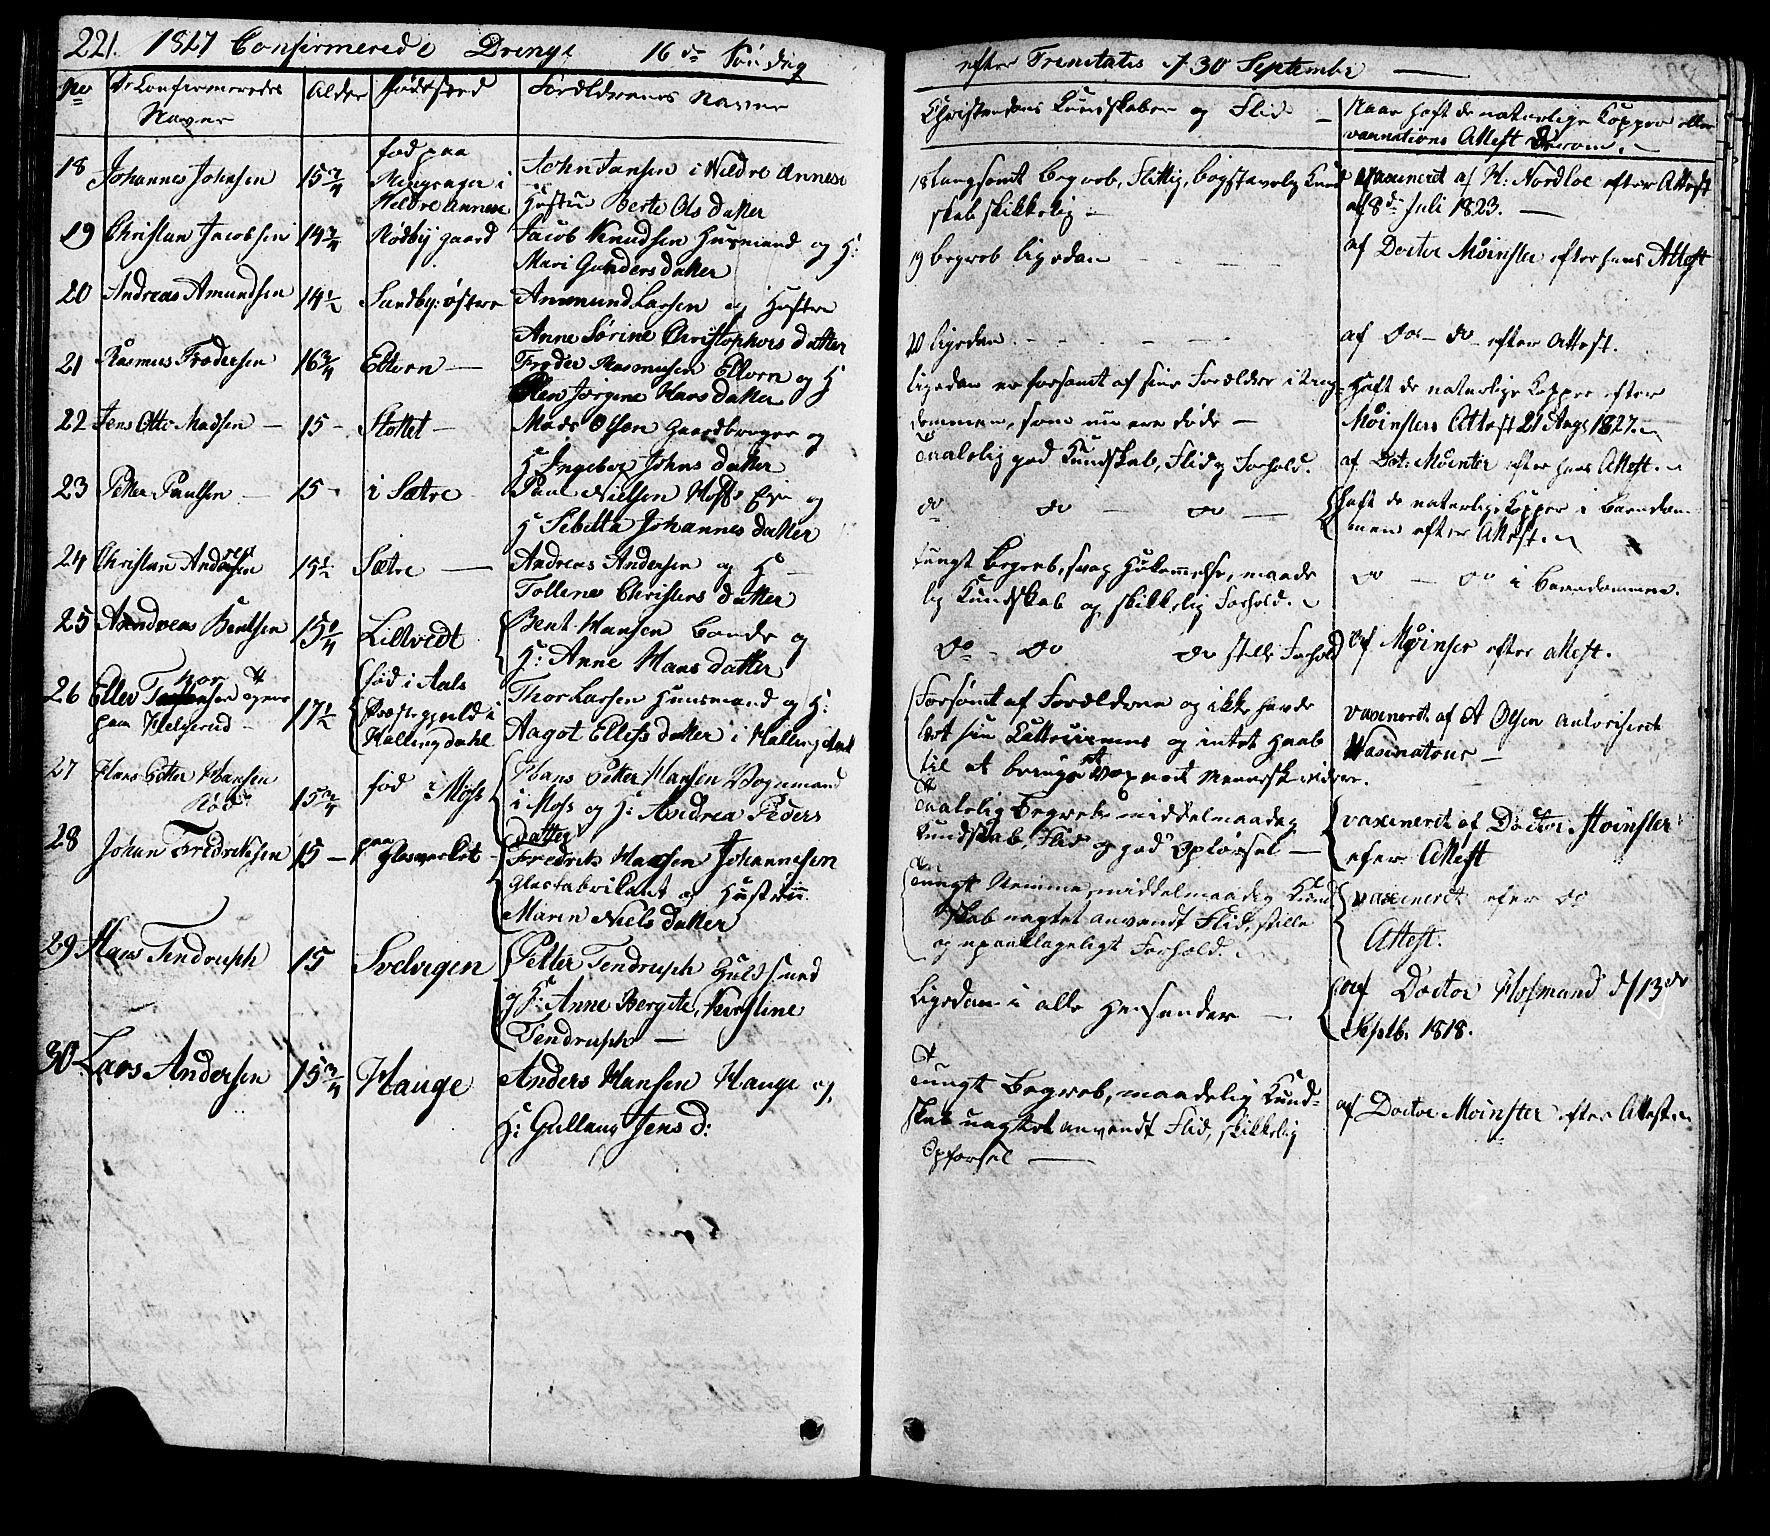 221. 1827 Confirmerede Drenge 16de Søndag
efter Trinitatis d 30 September
No De Confirmeredes Navne Alder Fødested Forældrenes Navne
Christendoms Kundskaber og Flid Naar haft de naturlige Kopper eller
vaccinations Attest derom.
18 Johannes Johnsen 15 3/4 fød paa
i Neldre Annese
John Jansen i Neldre Annese
Hustru Berte Olsdatter
18 Langsomt Begreb, flittig, bogstavelig Kund
skab skikkelig
vaxineret af H: Nordloe efter Attest
af 8de Juli 1823.
19 Christian Jacobsen 14 3/4 Rødby gaard
Jacob Knudsen Husmand og H:
Mari Gundersdatter
19 begreb ligedan
af Doctor Møinster efter hans Attest
20 Andreas Amundsen 14 1/2 Sandby: østre
Ammund Larsen og Hustru
Anne Sørine Christophersdatter
20 ligedan
af do do efter Attest.
21 Rasmus Frædersen 16 3/4 Eltorn
Fræder Rasmusen Eltorn og H
Jørgine Hansdatter
ligedan er forsømt af sine Forældre i Ung
dommen, som nu ere døde
Haft de naturlige Kopper efter
Møinsters Attest 21 Aug 1827.
22 Jens Otto Madsen 15 Stottet
Mads Olsen Gaardbruger og
H Ingeborg Johnsdatter
Taalelig god Kundskab, Flid og Forhold.
af Doct: Møinter efter hans Attest.
23 Petter Paulsen 15 i Sætre
Paul Nielsen og
H Sibilla Johannesdatter
do do do
haft de naturlige Kopper i Barndom
men efter Attest.
24 Christian Andersen 15 1/2 Sætre
Andreas Andersen og H
Tolline Christensdatter
tungt Begreb, svag Hukommelse, maade
lig Kundskab og skikkelig Forhold.
do do i Barndommen.
25 Andreas Bentsen 15 1/4 Lillvedt
Bent Hansen Bonde og
H: Anne Hansdatter
do do do stille Forhold
af Møinser efter attest.
26 Ellev Thorsen
paa Helgerud 17 1/2 fød i Aals
Præstegjeld i
Hallingdahl
Thor Larsen Huusmand og H:
Aagot Ellefsdatter i Hallingdal
Forsømt af Forældrene og ikke havde
lært sin Catecismus og intet Haab
til at bringe
vaxineret af A Olsen autoriseret
Vaxinatour
27 Hans Petter Hansen
Rød 15 3/4 fød i Moss
Hans Petter Hansen Vognmand
i Moss og H: Andrea Peders
datter
Taalelig Begreb middelmaadig
Kundskab, Flid og god Opførsel
vaxineret af Doctor Møinster
efter Attest
28 Johan Fredriksen 15 paa Glasverket
Fredrik Hansen Johannesen
Glasfabrikant og Hustru
Maren Nielsdatter
tungt Nemme, middelmaadig Kund
skab uagtet anvendt Flid, stille
og upaaklageligt Forhold.
vaxineret efter do
Attest.
29 Hans Tendruph 15 Svelvigen
Petter Tendruph Guldsmed
og H: Anne Bergite, Kirstine
Tendruph
Ligedan i alle Henseender
af Doctor Hofmand d 13de
Septb. 1818.
30 Lars Andersen 15 3/4 Hauge
Anders Hansen Hauge og
H: Gullaug Jens d:
tungt Begreb, maadelig Kund-
skab uagtet anvendt Flid, skikkelig
Opførsel
af Doctor Møinster efter Attest